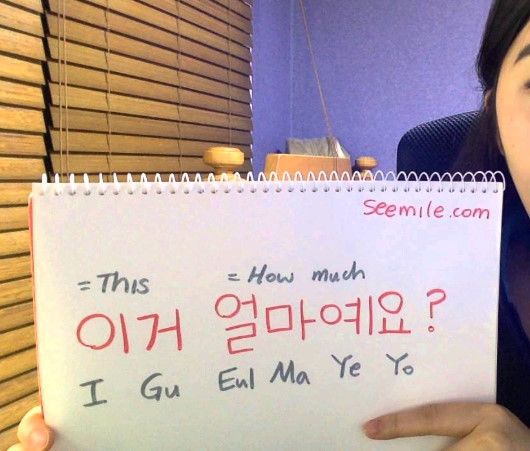 Seemile.com
= This = How much
이거 얼마예요?
I Gu Eul Ma Ye Yo